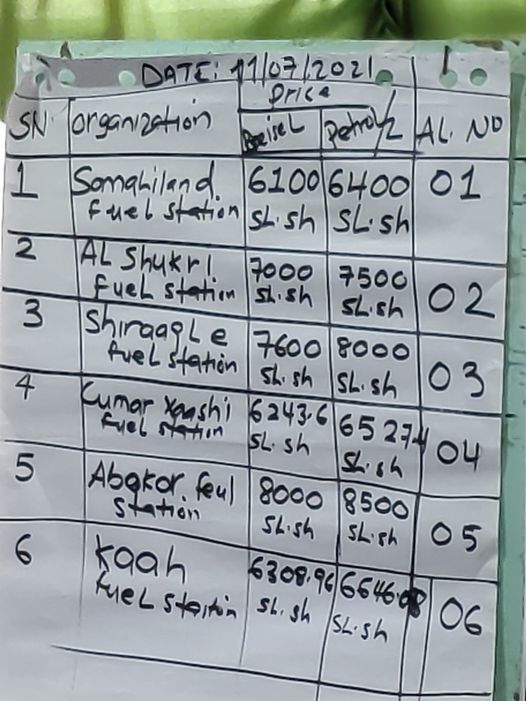 DATE: 11/07/2021
Price
SN. Organization Deisel Petrol/L AL. NO
1 Somahiland 6100 6400 01
fuel station SL.sh SL.sh
2 AL Shukri 7000 7500 02
fuel station SL.sh SL.sh
3 Shiraaqle 7600 8000 03
fuel station SL.sh SL.sh
4 Cumar Xaashi 6243.6 6527.4 04
fuel station SL.sh SL.sh
5 Abakor. feul 8000 8500 05
station SL.sh SL.sh
6 Kaah 6308.96 6646.08 06
fuel staition SL.sh SL.sh